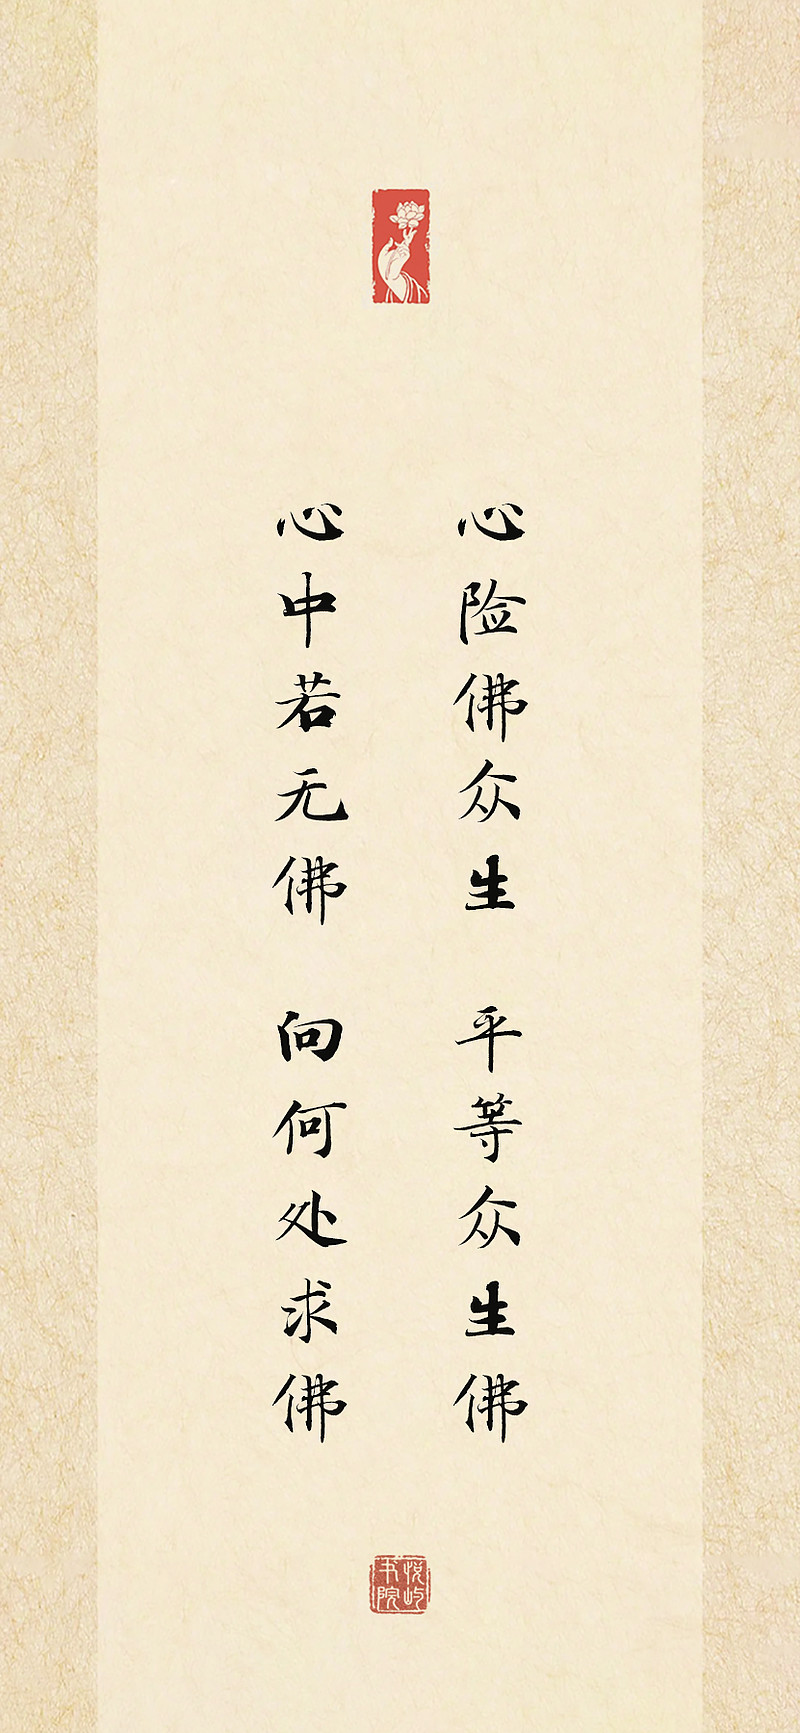 心险佛众生 平等众生佛
心中若无佛 向何处求佛
悦屿书院